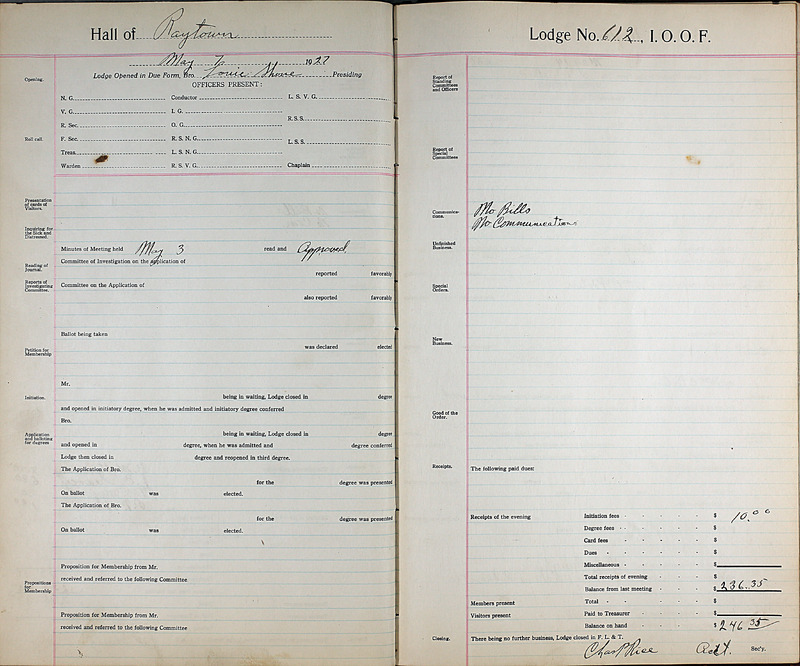 Hall of Raytown
May 7 1927
Lodge Opened in Due Form, Bro. Louie Shores Presiding
OFFICERS PRESENT:
Opening.
N. G. Conductor L. S. V. G.
V. G. I. G.
R. S. S.
R. Sec. O. G.
Roll call.
F. Sec. R. S. N. G.
L. S. S.
Treas. L. S. N. G.
Warden R. S. V. G. Chaplain
Presentation of cards of Visitors.
Inquiring for the Sick and Distressed.
Minutes of Meeting held May 3 read and Approved
Reading of Journal.
Committee of Investigation on the application of
reported favorably
Reports of Investigating Committee.
Committee on the Application of
also reported favorably
Ballot being taken
Petition for Membership
was declared elected
Mr.
Initiation.
being in waiting, Lodge closed in degree
and opened in initiatory degree, when he was admitted and initiatory degree conferred
Bro.
Application and balloting for degrees
being in waiting, Lodge closed in degree
and opened in degree, when he was admitted and degree conferred
Lodge then closed in degree and reopened in third degree.
The Application of Bro.
for the degree was presented
On ballot was elected.
The Application of Bro.
for the degree was presented
On ballot was elected.
Proposition for Membership from Mr.
received and referred to the following Committee
Propositions for Membership
Proposition for Membership from Mr.
received and referred to the following Committee
Lodge No. 612, I. O. O. F.
Report of Standing Committees and Officers
Report of Special Committees
Communications.
No Bills
No Communications
Unfinished Business.
Special Orders.
New Business.
Good of the Order.
Receipts.
The following paid dues:
Receipts of the evening Initiation fees $ 10.00
Degree fees $
Card fees $
Dues $
Miscellaneous $
Total receipts of evening $
Balance from last meeting $ 236.35
Members present Total $
Visitors present Paid to Treasurer $
Balance on hand $ 246 35
Closing.
There being no further business, Lodge closed in F. L. & T.
Chas P Rice Act. Sec'y.